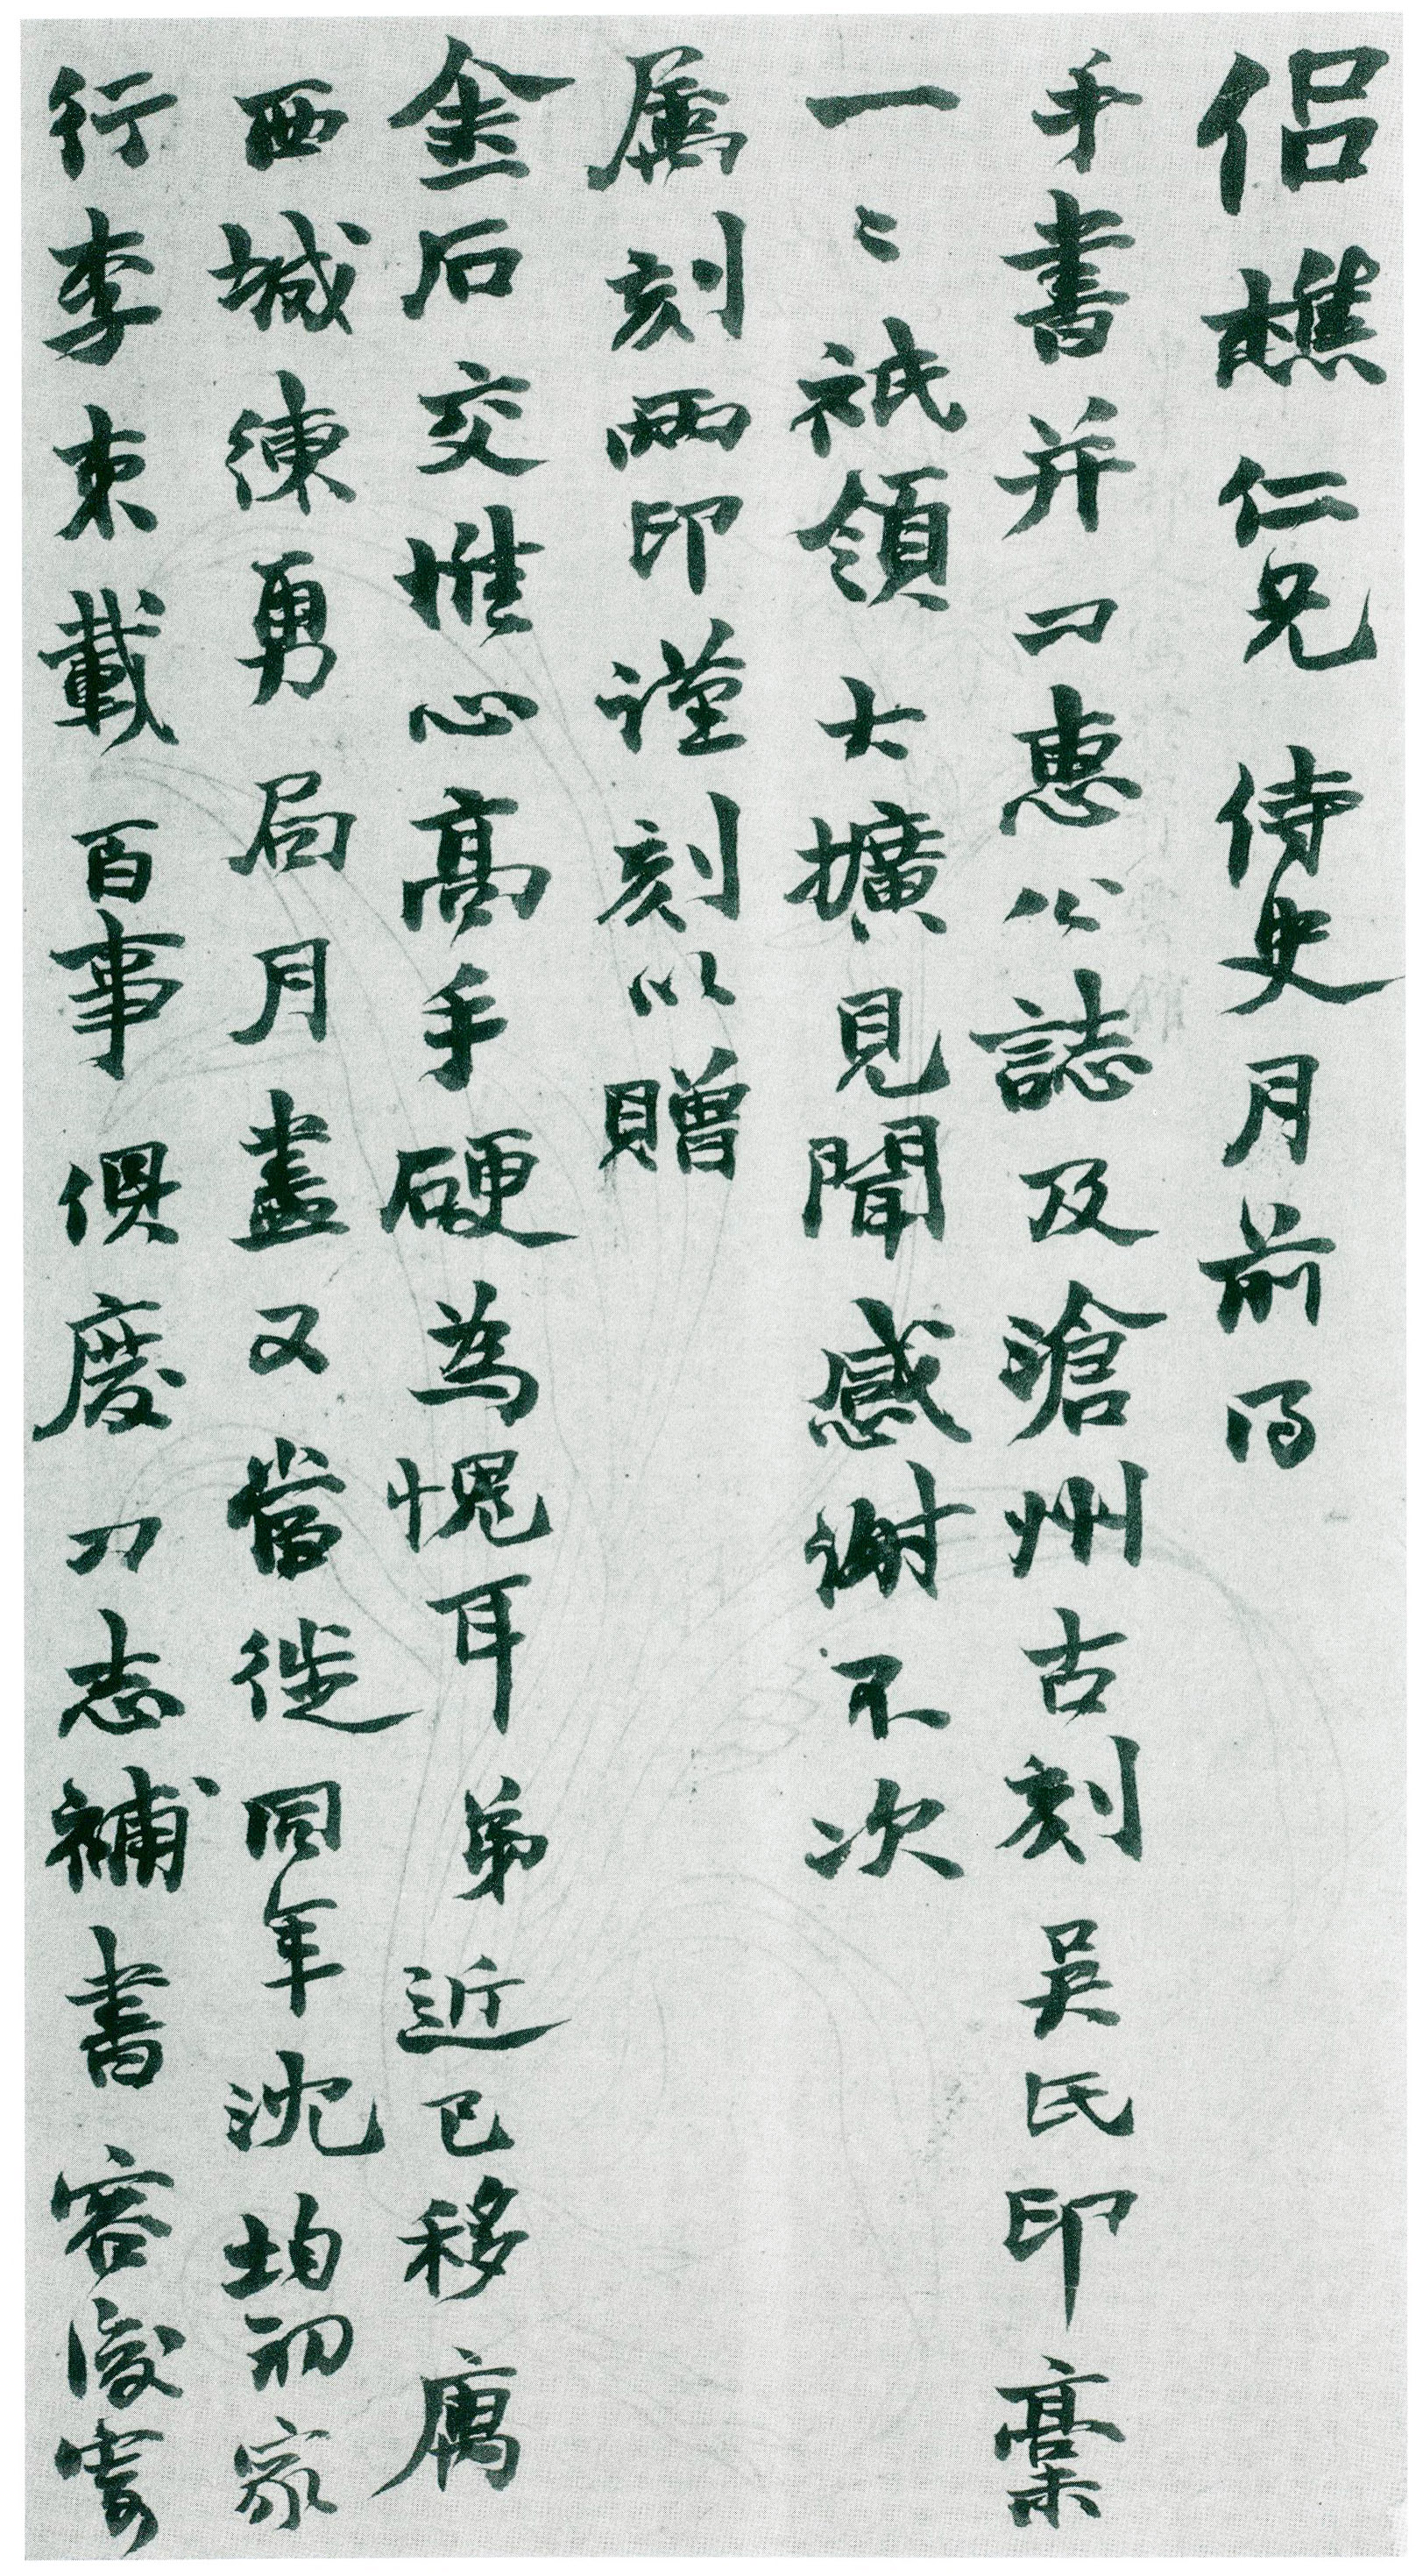 侣樵仁兄侍史月前得
手書并口惠公誌及滄州古刻吳氏印稾
一〻祇領大擴見聞感謝不次
属刻兩印謹刻以贈
金石交惟心高手硬為愧耳弟近已移寓
西城練勇局月盡又當徙同年沈均初家
行李束載百事俱廢刀志補書容後寄